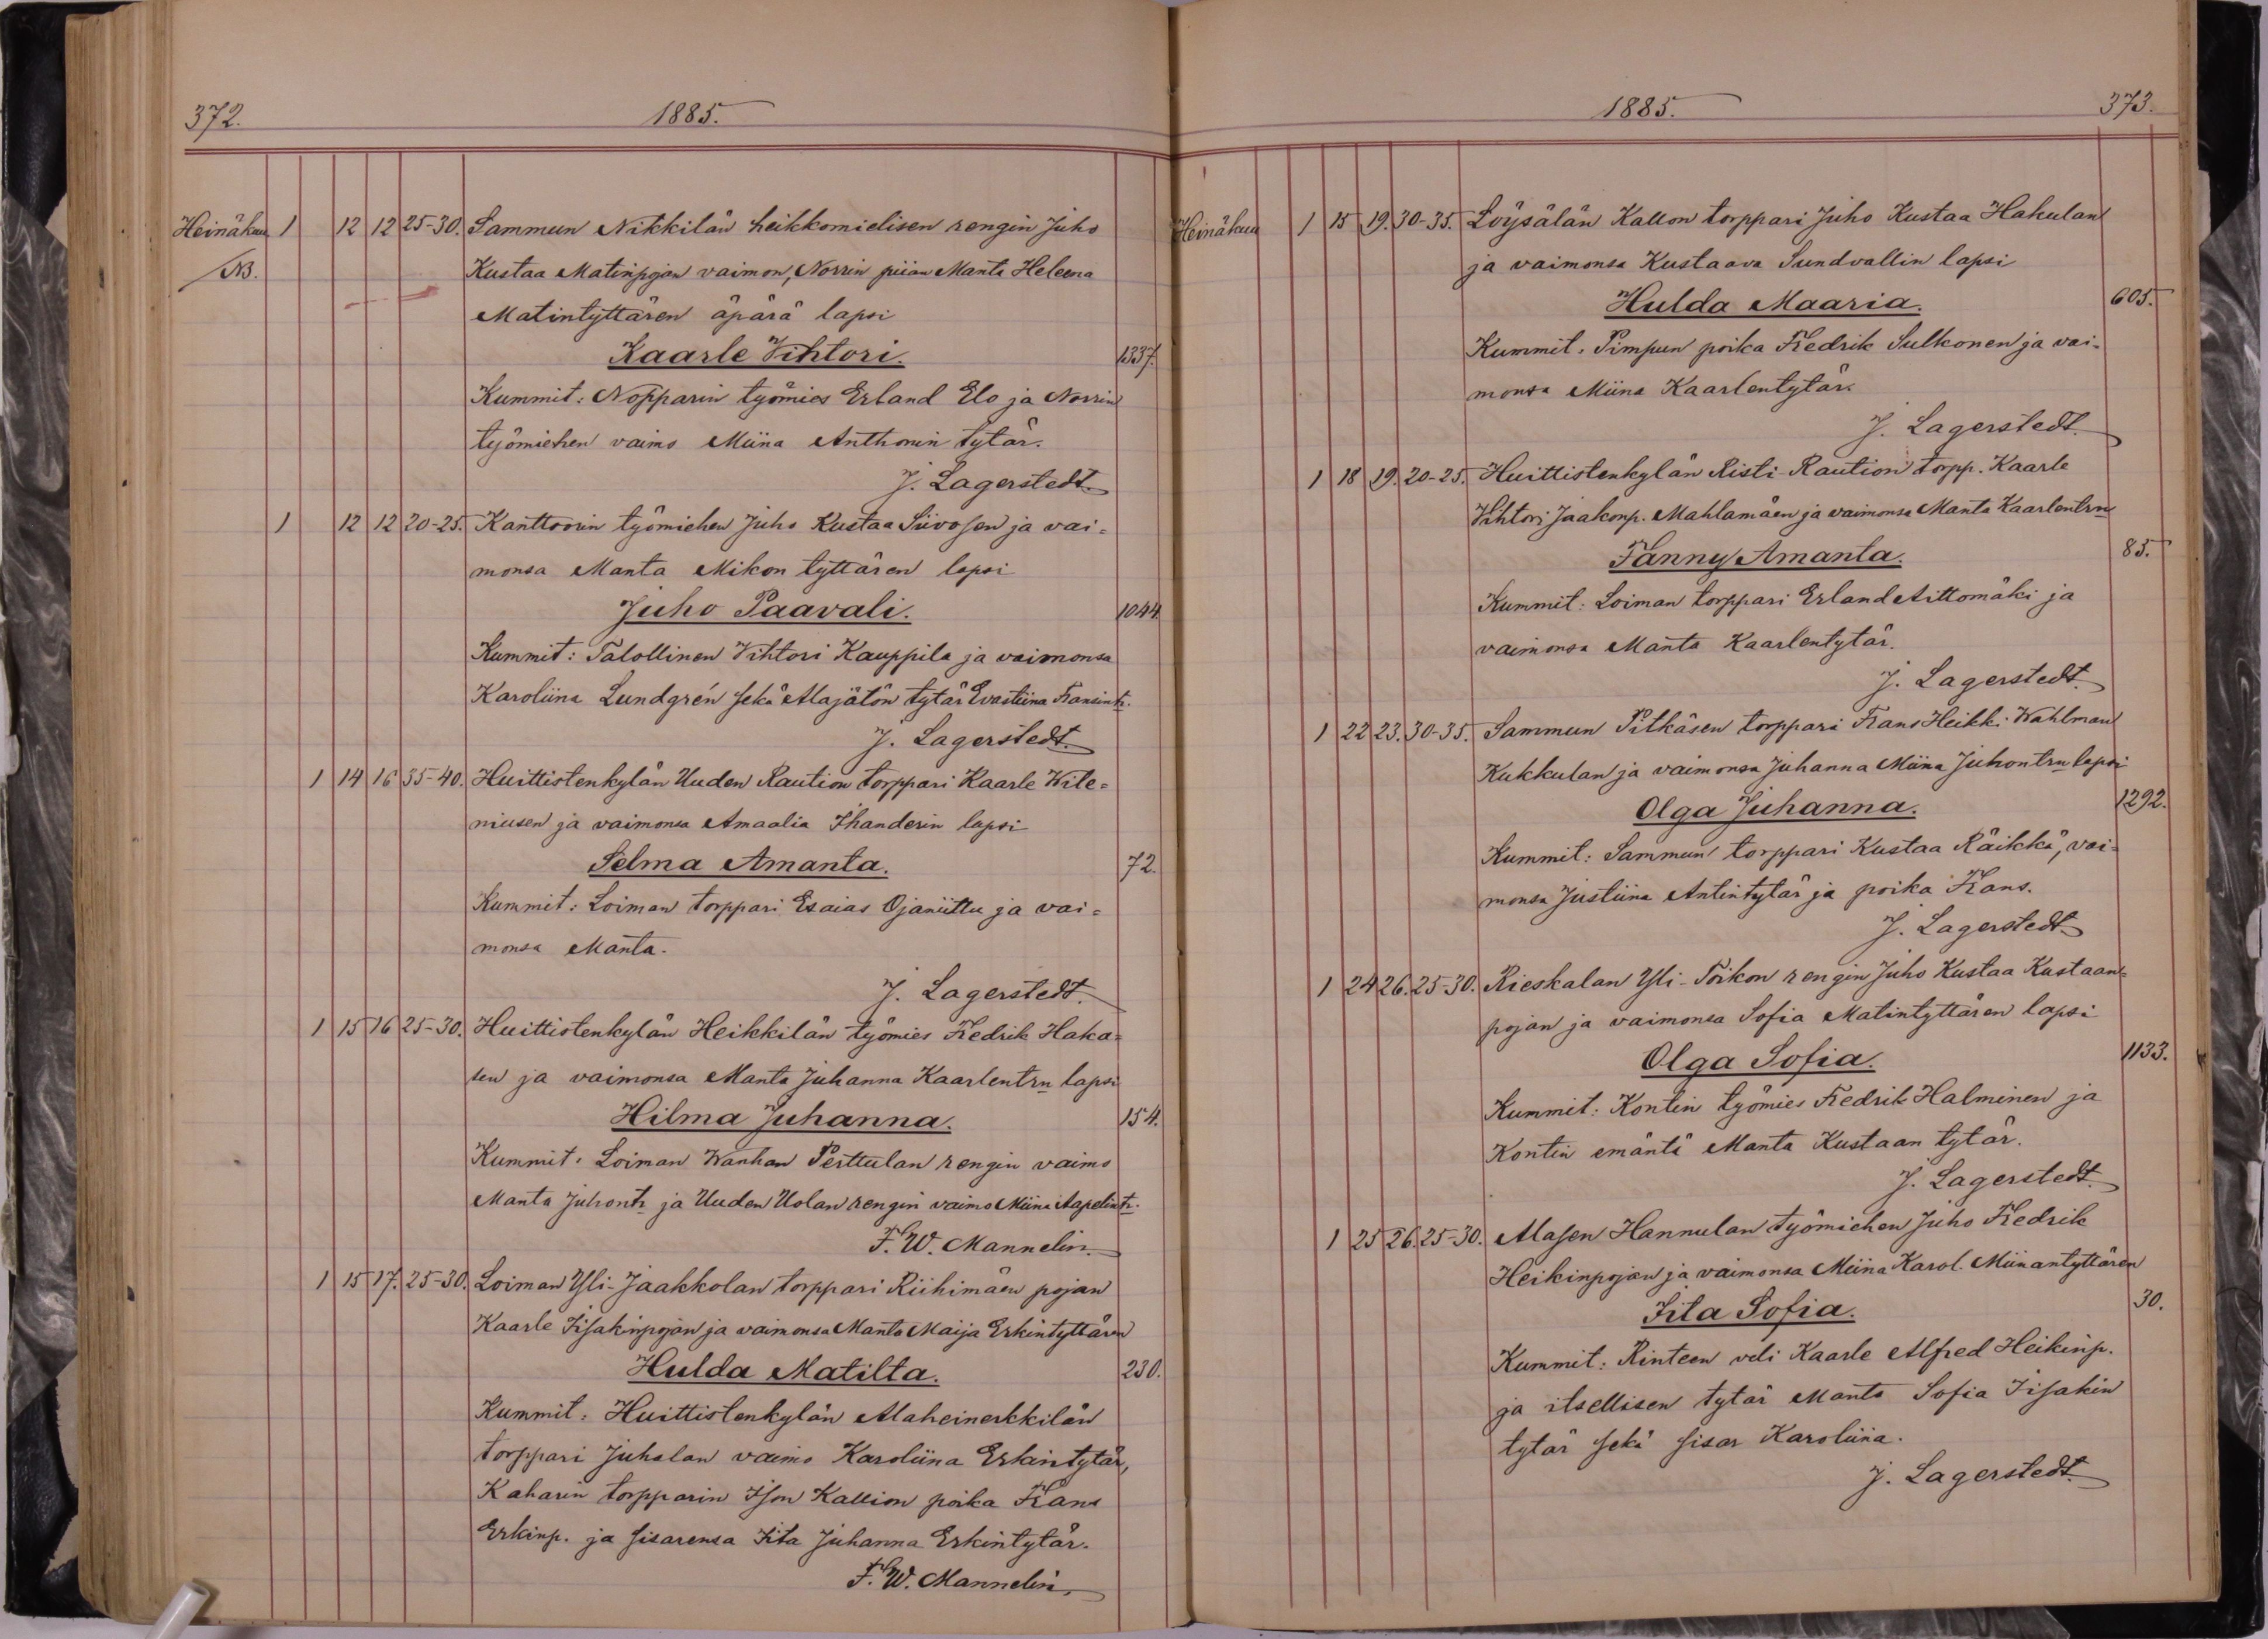 372. 1885.
Heinäkuu 1 12 12 25-30. Sammun Nikkilän heikkomielisen rengin Juho
NB. Kustaa Matinpojan vaimon, Norrin piian Manta Heleena
Matintyttären äpärä lapsi
Kaarle Vihtori. 1337.
Kummit: Nopparin työmies Erland Elo ja Norrin
työmiehen vaimo Miina Anthonin tytär.
J. Lagerstedt.
1 12 12 20-25. Kanttoorin työmiehen Juho Kustaa Siivosen ja vai=
monsa Manta Mikon tyttären lapsi
Juho Paavali. 1044
Kummit: Talollinen Vihtori Kauppila ja vaimonsa
Karoliina Lundgrén sekä Alajätön tytär Evastiina Fransintr.
J. Lagerstedt.
1 14 16 35-40. Huittistenkylän Uuden Raution torppari Kaarle Wile=
niusen ja vaimonsa Amaalia Ihanderin lapsi
Selma Amanta. 72.
Kummit: Loiman torppari Esaias Ojaniittu ja vai=
monsa Manta.
J. Lagerstedt.
1 15 16 25-30. Huittistenkylän Heikkilän työmies Fredrik Haka=
sen ja vaimonsa Manta Juhanna Kaarlentrn lapsi
Hilma Juhanna. 154.
Kummit: Loiman Wanhan Perttulan rengin vaimo
Manta Juhontr ja Uuden Uolan rengin vaimo Miina Aapelintr.
F. W. Mannelin.
1 15 17. 25-30. Loiman Yli-Jaakkolan torppari Riihimäen pojan
Kaarle Iisakinpojan ja vaimonsa Manta Maija Erkintyttären
Hulda Matilta. 230.
Kummit: Huittistenkylän Alaheinerkkilän
torppari Juhalan vaimo Karoliina Erkintytär,
Kaharin torpparin Ison Kallion poika Frans
Erkinp. ja sisarensa Iita Juhanna Erkintytär.
F. W. Mannelin.
1885. 373.
Heinäkuu 1 15 19. 30-35. Löysälän Kallon torppari Juho Kustaa Hakulan
ja vaimonsa Kustaava Sundvallin lapsi
Hulda Maaria. 605.
Kummit: Pimpun poika Fredrik Sulkonen ja vai=
monsa Miina Kaarlentytär.
J. Lagerstedt.
1 18 19. 20-25. Huittistenkylän Risti-Raution torpp. Kaarle
Vihtori Jaakonp. Mahlamäen ja vaimonsa Manta Kaarlentrn
Fanny Amanta. 85.
Kummit: Loiman torppari Erland Aittomäki ja
vaimonsa Manta Kaarlentytär.
J. Lagerstedt.
1 22 23. 30-35. Sammun Pitkäsen torppari Frans Heikki Wahlman
Kukkulan ja vaimonsa Juhanna Miina Juhontrn lapsi
Olga Juhanna. 1292.
Kummit: Sammun torppari Kustaa Räikkä, vai=
monsa Justiina Antintytär ja poika Frans.
J. Lagerstedt
1 24 26. 25-30. Rieskalan Yli-Toikon rengin Juho Kustaa Kustaan=
pojan ja vaimonsa Sofia Matintyttären lapsi
Olga Sofia. 1133.
Kummit: Kontin työmies Fredrik Halminen ja
Kontin emäntä Manta Kustaan tytär.
J. Lagerstedt.
1 25 26. 25-30. Alasen Hannulan työmiehen Juho Fredrik
Heikinpojan ja vaimonsa Miina Karol. Miinantyttären
Iita Sofia. 30.
Kummit: Rinteen veli Kaarle Alfred Heikinp.
ja itsellisen tytär Manta Sofia Iisakin
tytär sekä sisar Karoliina.
J. Lagerstedt.